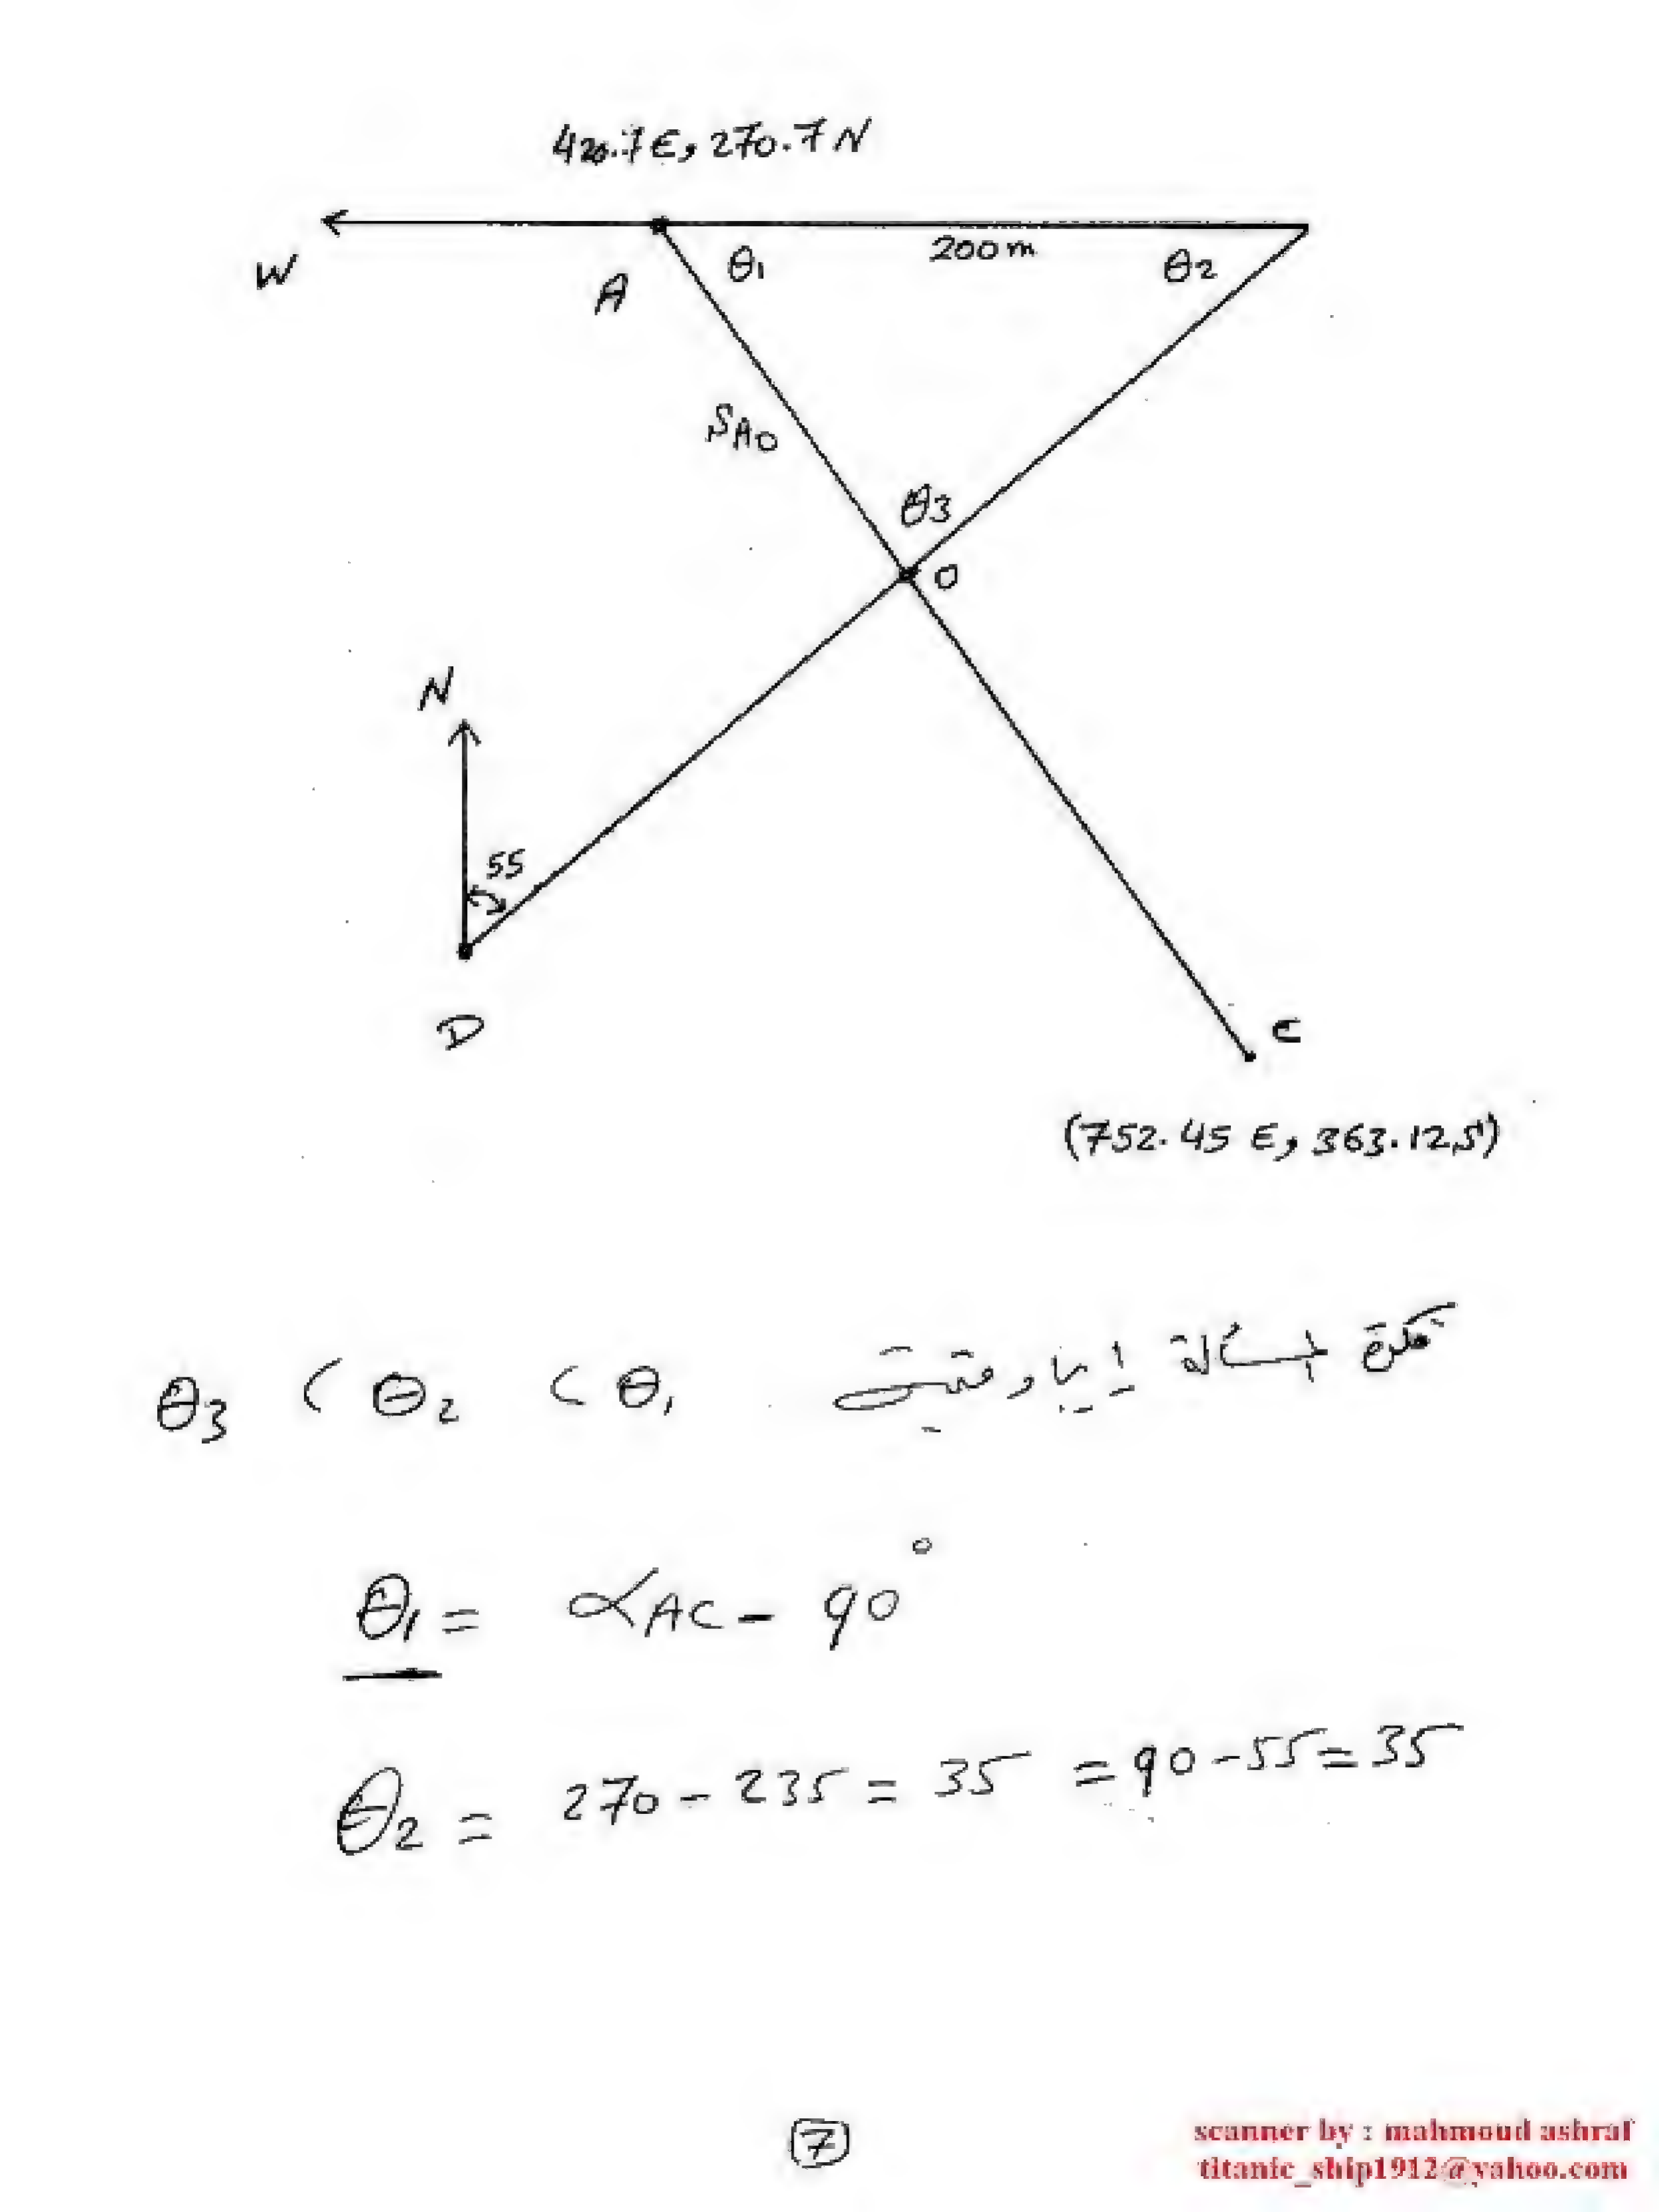 420.7 E, 270.7 N
W
A
θ1
200 m
θ2
SAO
θ3
O
N
55
D
C
(752.45 E, 363.12 S)
فكرة المسألة إيجاد قيمة θ1 ، θ2 ، θ3
θ1 = αAC - 90°
θ2 = 270 - 235 = 35 = 90 - 55 = 35
7
scanner by : mahmoud ashraf
titanic_ship1912@yahoo.com